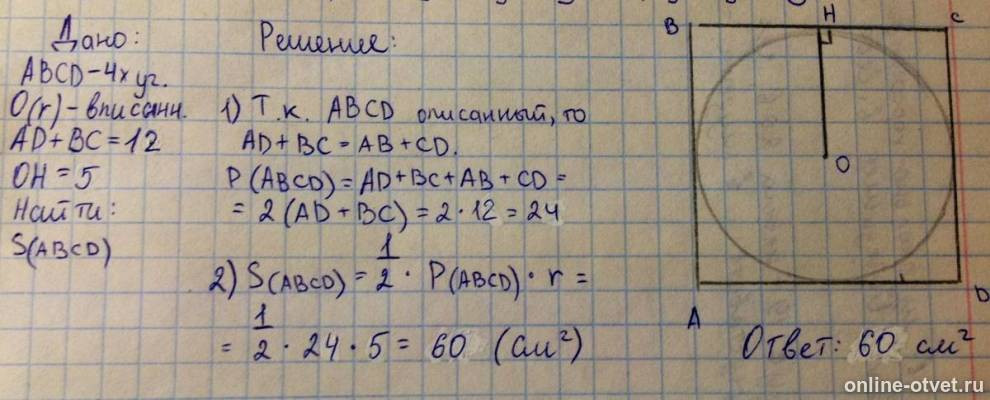 Дано:
ABCD-4х уг.
O(r)-вписанн.
AD+BC=12
OH=5
Найти:
S(ABCD)
Решение:
1) Т.к. ABCD описанный, то
AD+BC=AB+CD.
P(ABCD)=AD+BC+AB+CD=
=2(AD+BC)=2·12=24
2) S(ABCD)=1/2·P(ABCD)·r=
=1/2·24·5=60 (см²)
B
H
C
O
A
D
Ответ: 60 см²
online-otvet.ru